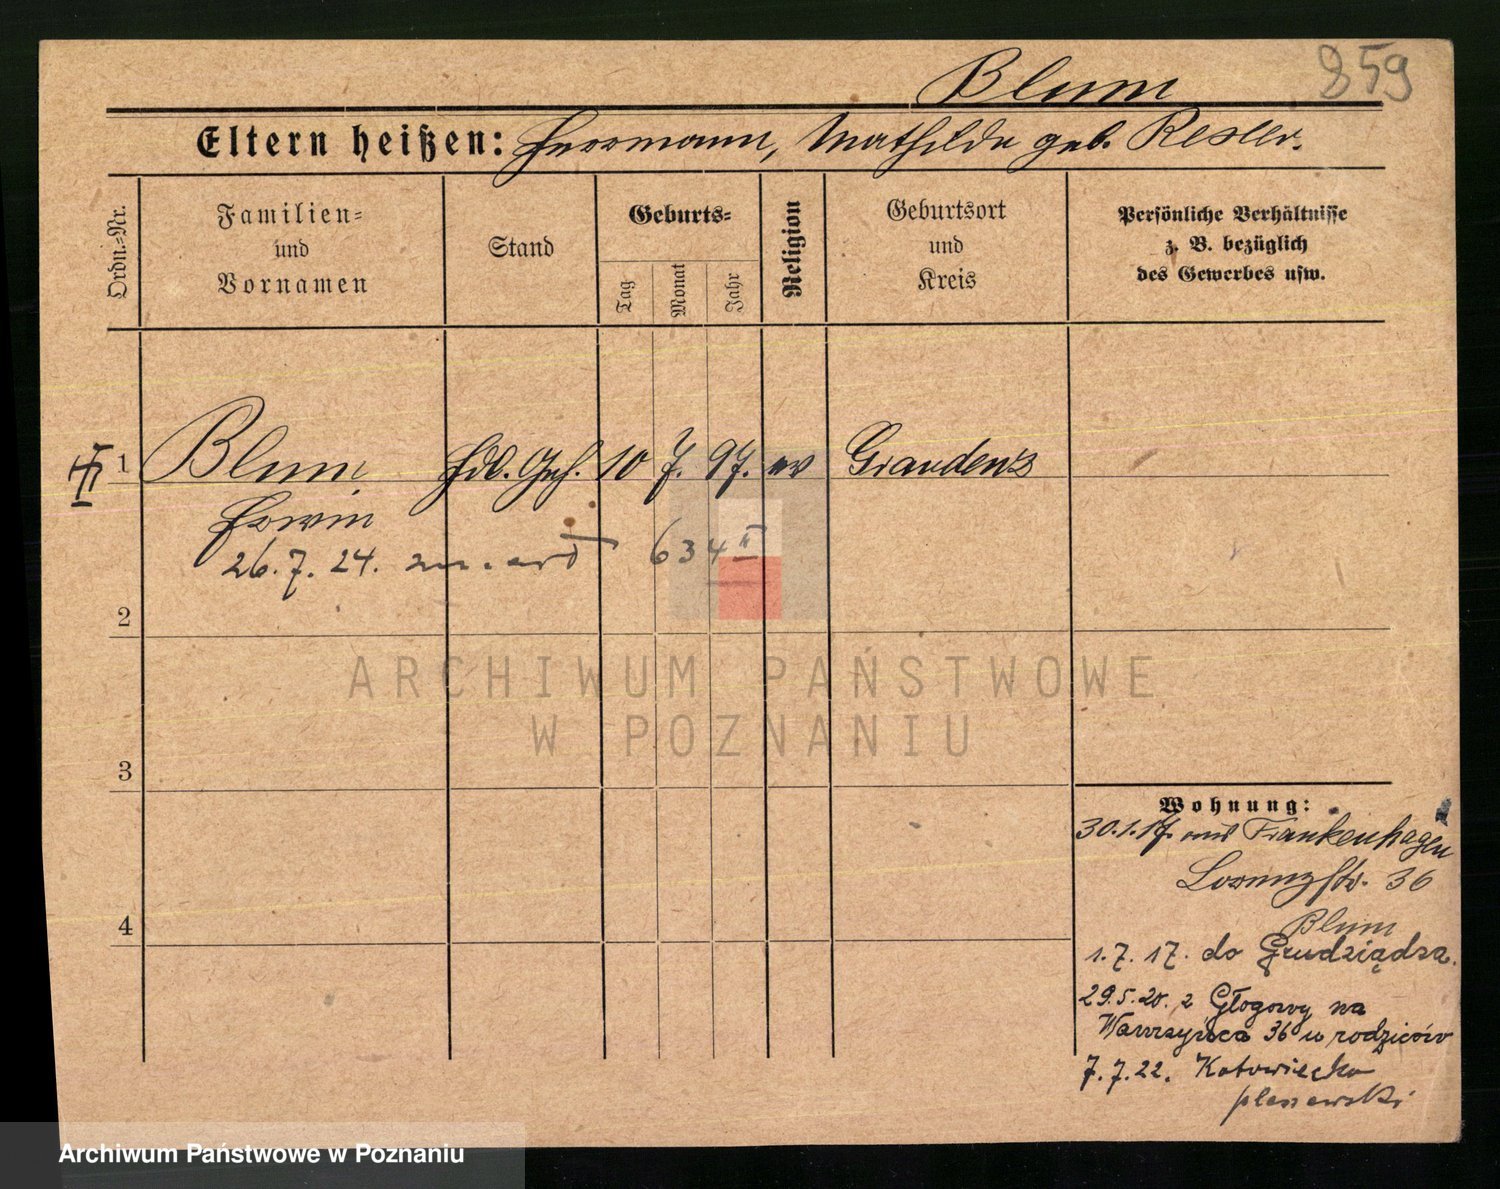 Blum
859
Eltern heißen: Herrmann, Mathilde geb. Resler.
Ordn.=Nr.
Familien=
und
Vornamen
Stand
Geburts=
Tag
Monat
Jahr
Religion
Geburtsort
und
Kreis
Persönliche Verhältnisse
z. B. bezüglich
des Gewerbes usw.
1 Blum Hdl. Geh. 10 7. 97. ev Graudenz
Erwin
26.7.24. 634 II
2
3
4
Wohnung:
30.1.17. aus Frankenhagen
Lorenzstr. 36
Blum
1.7.17. do Grudziądza.
29.5.20. z Głogowy na
Wawrzyńca 36 u rodziców
7.7.22. Katowicka
pleszewski
ARCHIWUM PAŃSTWOWE
W POZNANIU
Archiwum Państwowe w Poznaniu